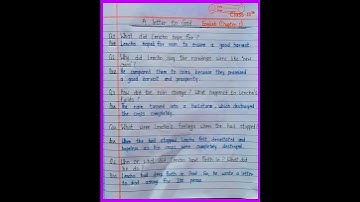 Class-10th
A letter to God English Chapter-1
Q1 What did Lencho hope for?
Ans Lencho hoped for rain to ensure a good harvest.
Q2 Why did Lencho say the raindrops were like 'new
coins'?
Ans He compared them to coins because they promised
a good harvest and prosperity.
Q3 How did the rain change? What happened to Lencho's
fields?
Ans The rain turned into a hailstorm, which destroyed
the crops completely.
Q4 What were Lencho's feelings when the hail stopped?
Ans When the hail stopped, Lencho felt devastated and
hopeless as his crops were completely destroyed.
Q5 Who or what did Lencho have faith in? What did
he do?
Ans Lencho had deep faith in God. So, he wrote a letter
to God asking for 100 pesos.